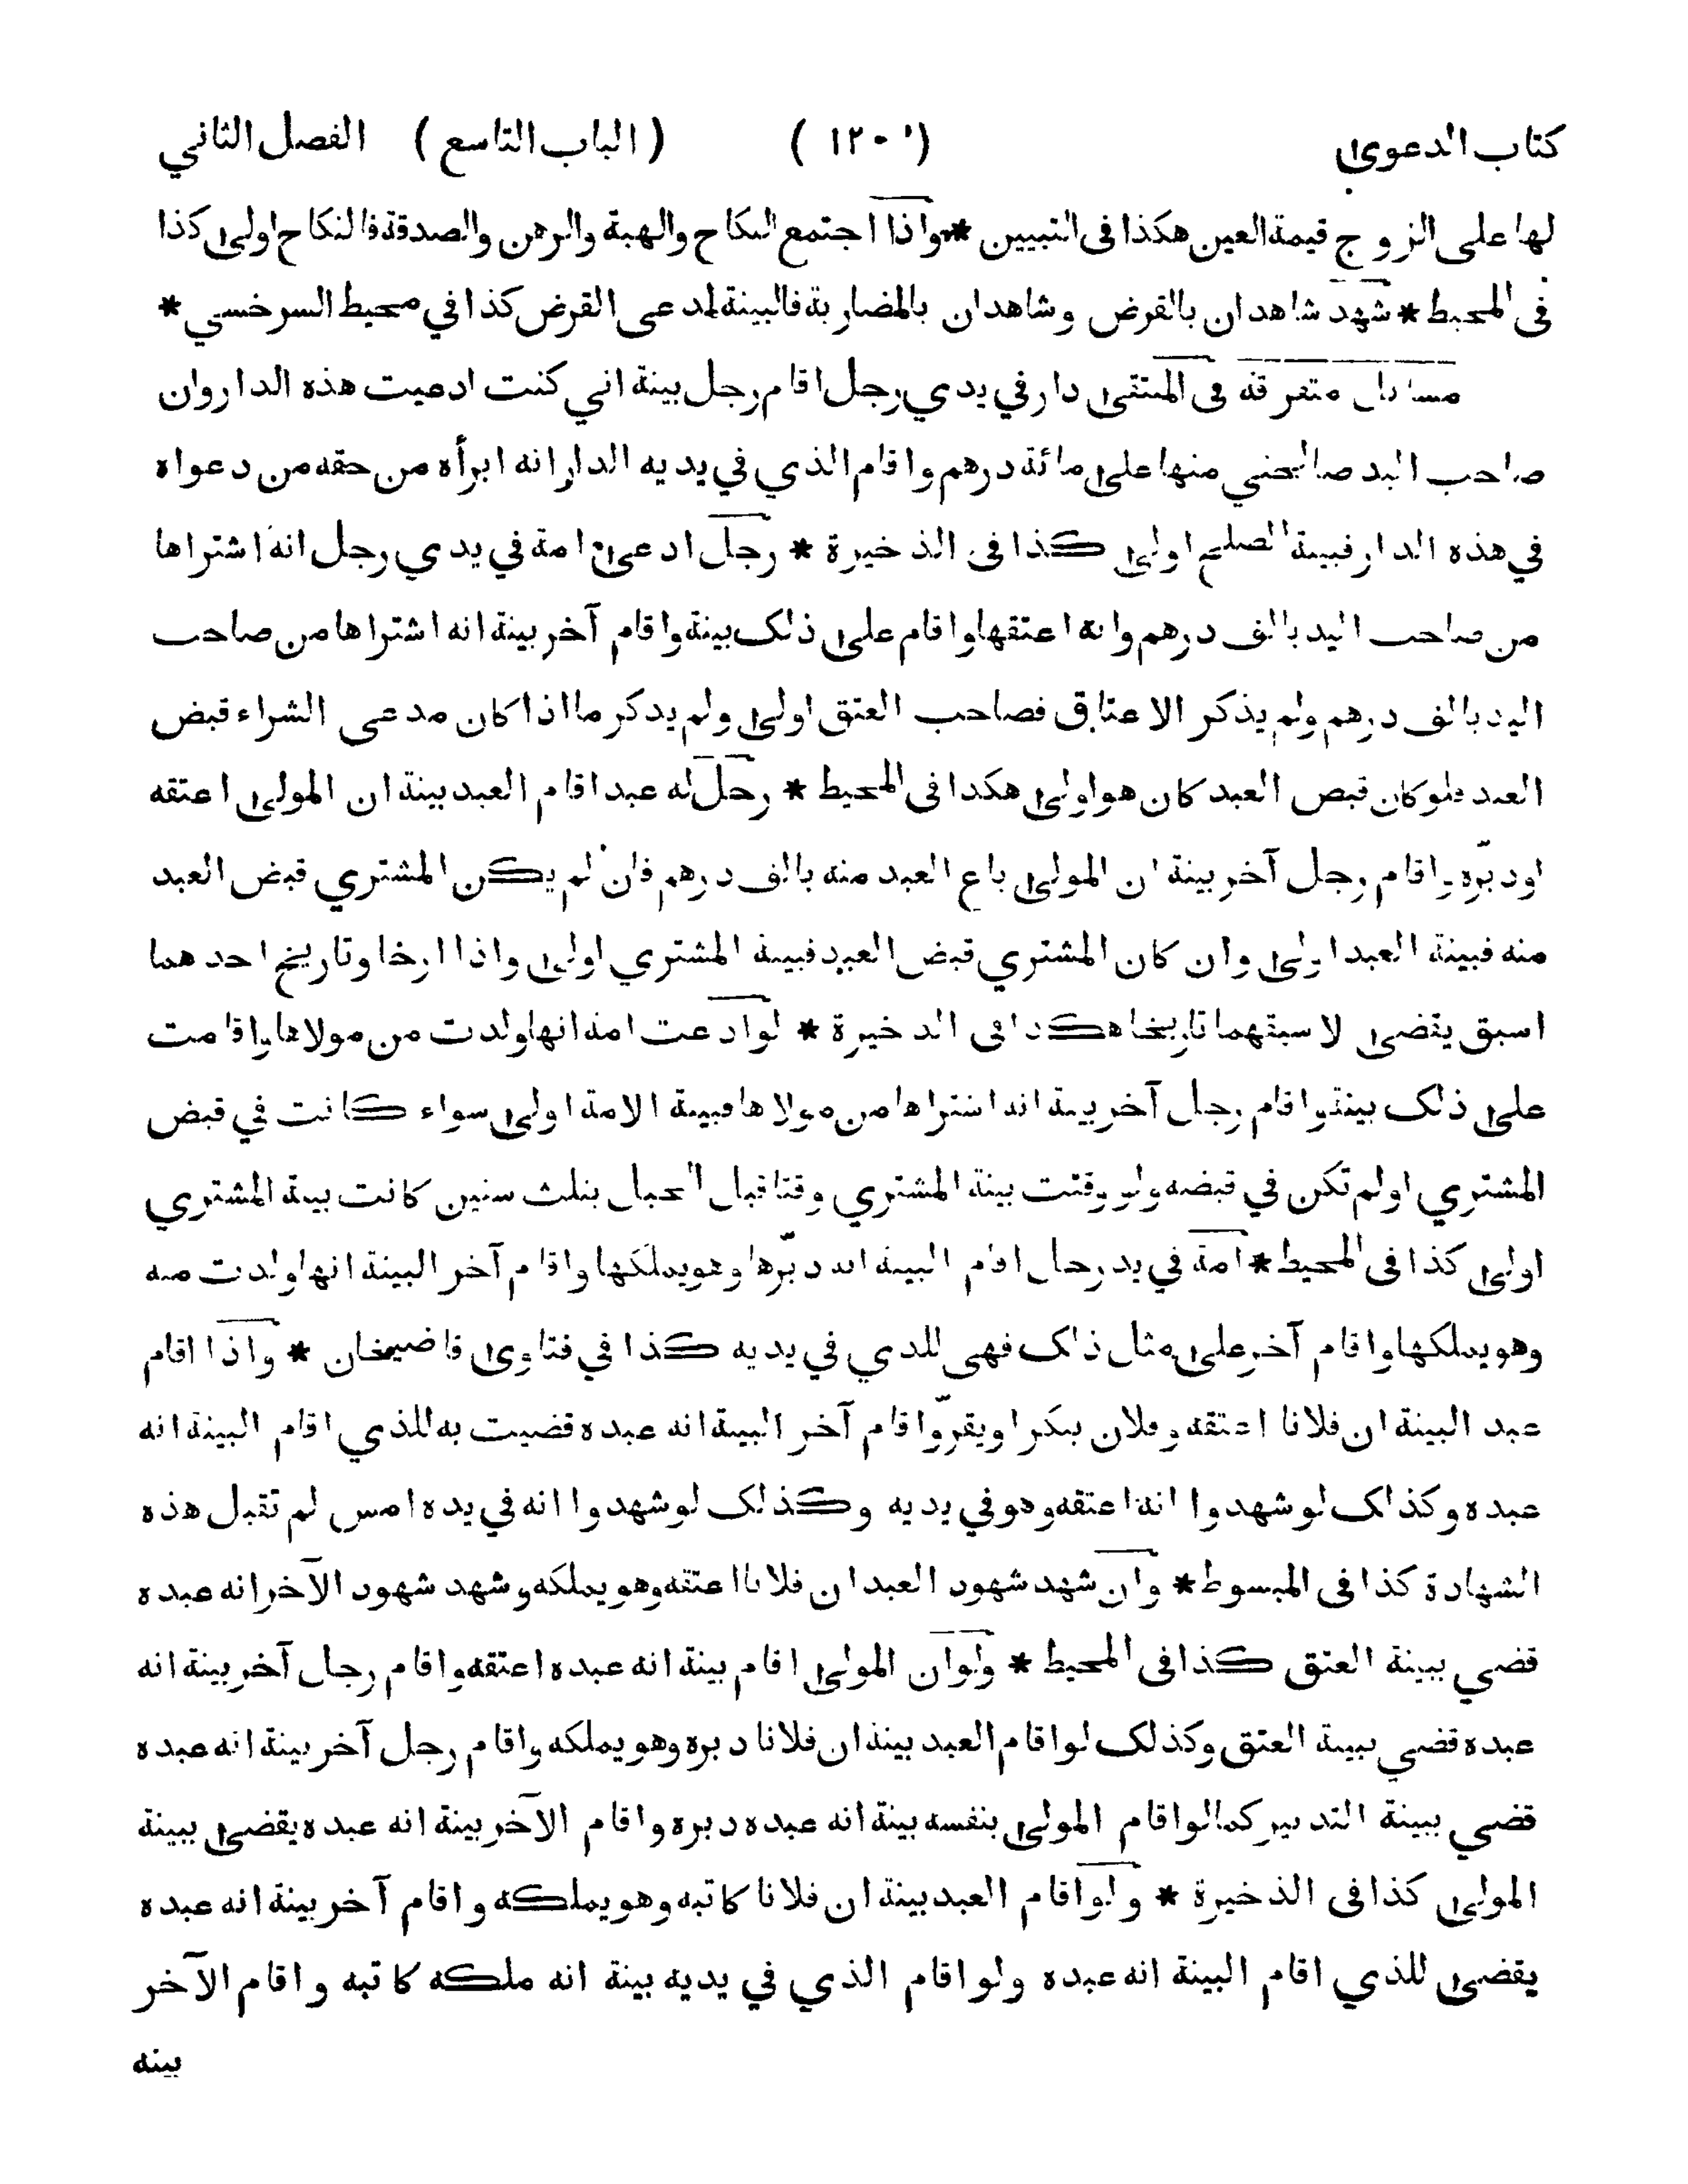 كتاب الدعوى (١٢٠) (الباب التاسع) الفصل الثاني
لها على الزوج قيمة العين هكذا فى التبيين * واذا اجتمع النكاح والهبة والرهن والصدقة فالنكاح اولى كذا
فى المحيط * شهد شاهدان بالقرض وشاهدان بالمضاربة فالبينة لمدعى القرض كذا في محيط السرخسي *
مسائل متفرقة فى المنتقى دار في يدي رجل اقام رجل بينة اني كنت ادعيت هذه الدار وان
صاحب اليد صالحني منها على مائة درهم واقام الذي في يديه الدار انه ابرأه من حقه من دعواه
في هذه الدار فبينة الصلح اولى كذا فى الذخيرة * رجل ادعى امة في يدي رجل انه اشتراها
من صاحب اليد بالف درهم وانه اعتقها واقام على ذلك بينة واقام آخر بينة انه اشتراها من صاحب
اليد بالف درهم ولم يذكر الاعتاق فصاحب العتق اولى ولم يذكر ما اذا كان مدعى الشراء قبض
العبد فلو كان قبض العبد كان هو اولى هكذا فى المحيط * رجل له عبد اقام العبد بينة ان المولى اعتقه
او دبّره واقام رجل آخر بينة ان المولى باع العبد منه بالف درهم فان لم يكن المشتري قبض العبد
منه فبينة العبد اولى وان كان المشتري قبض العبد فبينة المشتري اولى واذا ارخا وتاريخ احدهما
اسبق يقضى لاسبقهما تاريخا هكذا فى الذخيرة * لو ادعت امة انها ولدت من مولاها واقامت
على ذلك بينة واقام رجل آخر بينة انه اشتراها من مولاها فبينة الامة اولى سواء كانت في قبض
المشتري او لم تكن في قبضه ولو وقتت بينة المشتري وقتا قبل الحبل بثلث سنين كانت بينة المشتري
اولى كذا فى المحيط * امة في يد رجل اقام البينة انه دبّرها وهو يملكها واقام آخر البينة انها ولدت منه
وهو يملكها واقام آخر على مثل ذلك فهى للذي في يديه كذا في فتاوى قاضيخان * واذا اقام
عبد البينة ان فلانا اعتقه وفلان ينكر او يقرّ واقام آخر البينة انه عبده قضيت به للذي اقام البينة انه
عبده وكذلك لو شهدوا انه اعتقه وهو في يديه وكذلك لو شهدوا انه في يده امس لم تقبل هذه
الشهادة كذا فى المبسوط * وان شهد شهود العبد ان فلانا اعتقه وهو يملكه وشهد شهود الآخر انه عبده
قضي ببينة العتق كذا فى المحيط * ولو ان المولى اقام بينة انه عبده اعتقه واقام رجل آخر بينة انه
عبده قضي ببينة العتق وكذلك لو اقام العبد بينة ان فلانا دبره وهو يملكه واقام رجل آخر بينة انه عبده
قضي ببينة التدبير كما لو اقام المولى بنفسه بينة انه عبده دبره واقام الآخر بينة انه عبده يقضى ببينة
المولى كذا فى الذخيرة * ولو اقام العبد بينة ان فلانا كاتبه وهو يملكه واقام آخر بينة انه عبده
يقضى للذي اقام البينة انه عبده ولو اقام الذي في يديه بينة انه ملكه كاتبه واقام الآخر
بينه